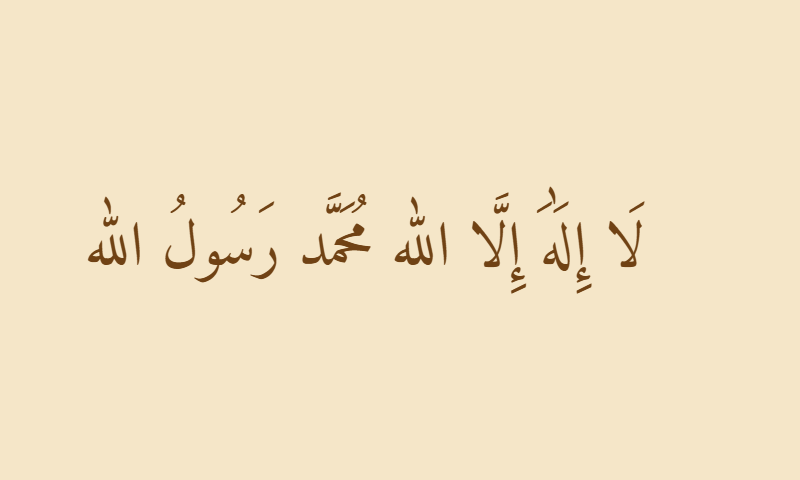 لَا إِلَٰهَ إِلَّا الله مُحَمَّد رَسُولُ الله